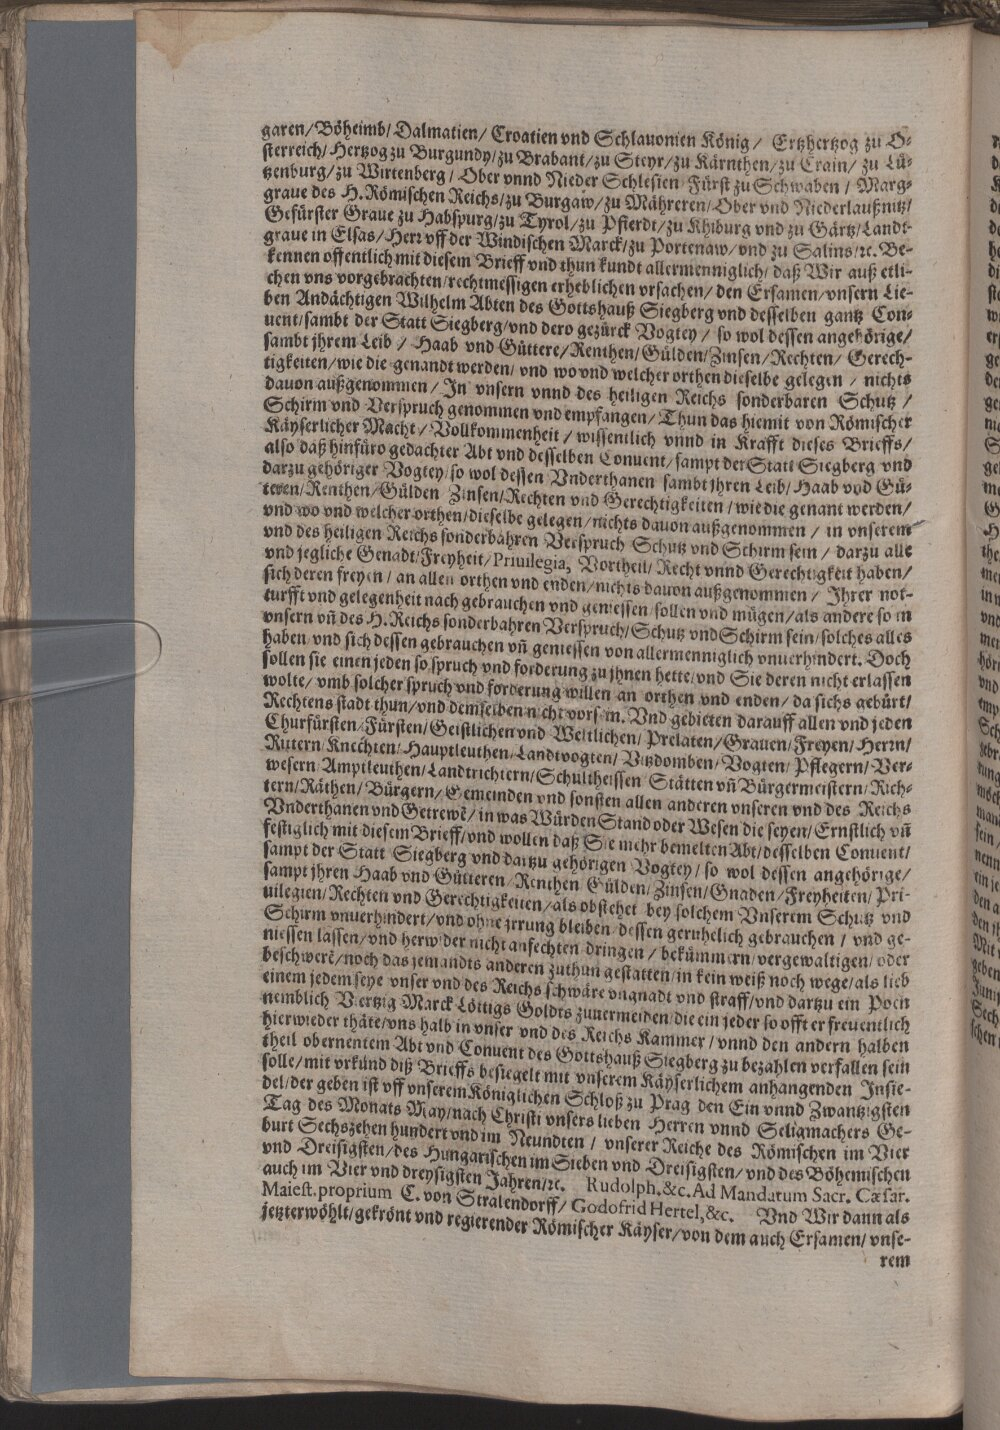 garen/Böheimb/Dalmatien/Croatien vnd Schlauonien König/ Ertzhertzog zu O-
sterreich/Hertzog zu Burgundy/zu Brabant/zu Steyr/zu Kärnthen/zu Crain/ zu Lü-
tzenburg/zu Wirtenberg/ Ober vnnd Nieder Schlesien Fürst zu Schwaben/ Marg-
graue des H.Römischen Reichs/zu Burgaw/zu Mähreren/Ober vnd Niederlaußnitz/
Gefürster Graue zu Habspurg/zu Tyrol/zu Pfierdt/zu Khiburg vnd zu Gärtz/Landt-
graue in Elsas/Herz vff der Windischen Marck/zu Portenaw/vnd zu Salins/ꝛc. Be-
kennen offentlich mit diesem Brieff vnd thun kundt allermenniglich/ daß Wir auß etli-
chen vns vorgebrachten/rechtmessigen erheblichen vrsachen/ den Ersamen/vnsern Lie-
ben Andächtigen Wilhelm Abten des Gottshauß Siegberg vnd desselben gantz Con-
uent/sambt der Statt Siegberg/vnd dero gezürck Vogtey/ so wol dessen angehörige/
sambt jhrem Leib/ Haab vnd Güttere/Renthen/Gülden/Zinsen/Rechten/ Gerech-
tigkeiten/wie die genandt werden/ vnd wo vnd welcher orthen dieselbe gelegen/ nichts
dauon außgenommen/ In vnsern vnnd des heiligen Reichs sonderbaren Schutz/
Schirm vnd Verspruch genommen vnd empfangen/ Thun das hiemit von Römischer
Käyserlicher Macht/ Vollkommenheit/ wissentlich vnnd in Krafft dieses Brieffs/
also daß hinfüro gedachter Abt vnd desselben Conuent/sampt der Statt Siegberg vnd
darzu gehöriger Vogtey/so wol dessen Vnderthanen sambt jhren Leib/ Haab vnd Gü-
teren/Renthen/Gülden Zinsen/Rechten vnd Gerechtigkeiten/wie die genant werden/
vnd wo vnd welcher orthen/dieselbe gelegen/nichts dauon außgenommen/ in vnserem
vnd des heiligen Reichs sonderbahren Verspruch Schutz vnd Schirm sein/ darzu alle
vnd jegliche Genadt/Freyheit/Priuilegia, Vortheil/ Recht vnnd Gerechtigkeit haben/
sich deren freyen/ an allen orthen vnd enden/nichts dauon außgenommen/ Ihrer not-
turfft vnd gelegenheit nach gebrauchen vnd geniessen sollen vnd mügen/als andere so in
vnsern vñ des H.Reichs sonderbahren Verspruch/Schutz vnd Schirm sein/solches alles
haben vnd sich dessen gebrauchen vñ geniessen von allermenniglich vnuerhindert. Doch
sollen sie einen jeden so spruch vnd forderung zu jhnen hette/vnd Sie deren nicht erlassen
wolte/ vmb solcher spruch vnd forderung willen an orthen vnd enden/ da sichs gebürt/
Rechtens stadt thun/vnd demselben nicht vor sein. Vnd gebieten darauff allen vnd jeden
Churfürsten/Fürsten/Geistlichen vnd Weltlichen/ Prelaten/Grauen/Freyen/ Herrn/
Rittern/Knechten/ Hauptleuthen/Landtvogten/ Vitzdomben/Vogten/ Pflegern/ Ver-
wesern/Amptleuthen/Landtrichtern/Schultheissen/Stätten vñ Bürgermeistern/Rich-
tern/Räthen/Bürgern/Gemeinden vnd sonsten allen anderen vnseren vnd des Reichs
Vnderthanen vnd Getrewẽ/ in was Würden Stand oder Wesen die seyen/Ernstlich vñ
festiglich mit diesem Brieff/vnd wollen daß Sie mehr bemelten Abt/desselben Conuent/
sampt der Statt Siegberg vnd dartzu gehörigen Vogtey/ so wol dessen angehörige/
sampt jhren Haab vnd Gütteren/Renthen Gülden/Zinsen/Gnaden/Freyheiten/ Pri-
uilegien/Rechten vnd Gerechtigkeiten/als obstehet bey solchem Vnserem Schutz vnd
Schirm vnuerhindert/vnd ohne jrrung bleiben/dessen geruhelich gebrauchen/ vnd ge-
niessen lassen/vnd herwider nicht anfechten dringen/ bekümmern/vergewaltigen/ oder
beschwerẽ/noch das jemandts anderen zuthun gestatten/in kein weiß noch wege/als lieb
einem jedem seye vnser vnd des Reichs schwäre vngnadt vnd straff/vnd dartzu ein Poen
nemblich Viertzig Marck Löttigs Goldts zuuermeiden/die ein jeder so offt er freuentlich
hierwieder thäte/vns halb in vnser vnd des Reichs Kammer/vnnd den andern halben
theil obernentem Abt vnd Conuent des Gottshauß Siegberg zu bezahlen verfallen sein
solle/mit vrkund diß Brieffs besiegelt mit vnserem Käyserlichem anhangenden Insie-
del/der geben ist vff vnserem Königlichen Schloß zu Prag den Ein vnnd Zwantzigsten
Tag des Monats May/nach Christi vnsers lieben Herren vnnd Seligmachers Ge-
burt Sechszehen hundert vnd im Neundten/ vnserer Reiche des Römischen im Vier
vnd Dreisigsten/des Hungarischen im Sieben vnd Dreisigsten/vnd des Böhemischen
auch im Vier vnd dreysigsten Jahren/ꝛc. Rudolph,&c. Ad Mandatum Sacr. Cæsar.
Maiest.proprium C.von Stralendorff/ Godofrid Hertel,&c. Vnd Wir dann als
jetzterwöhlt/gekrönt vnd regierender Römischer Käyser/von dem auch Ersamen/ vnse-
rem